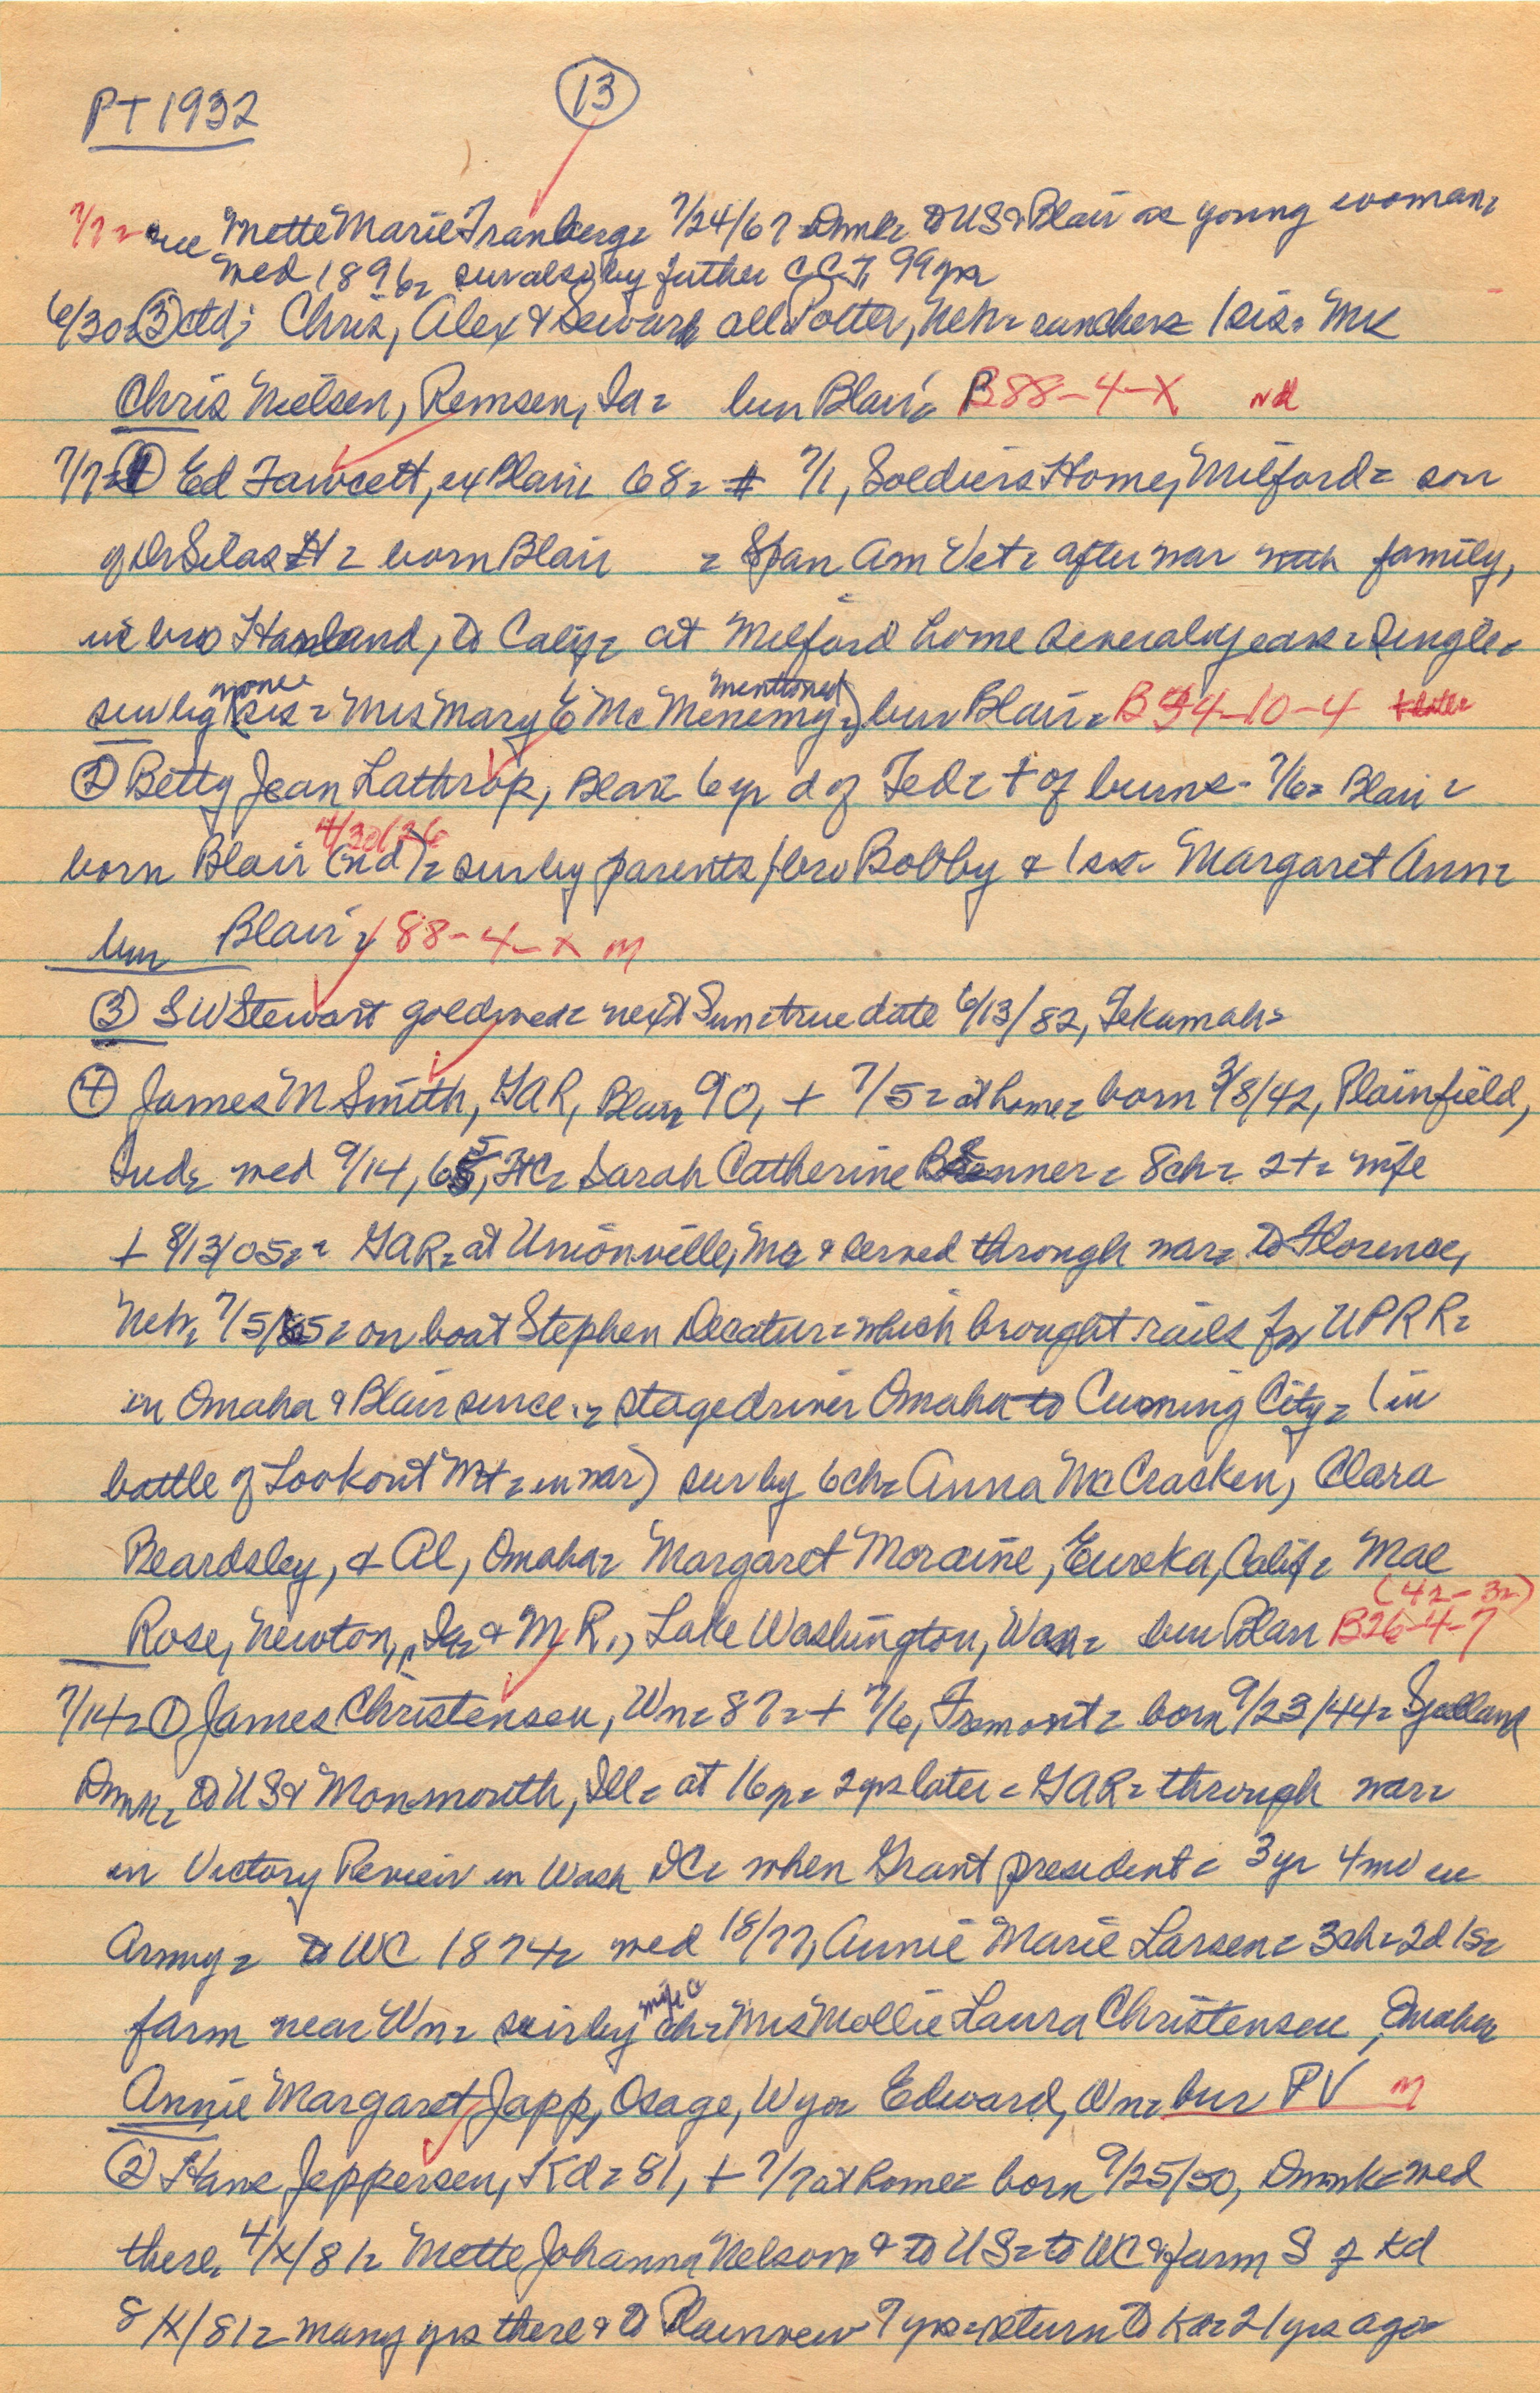 PT 1932
13
7/7= nee Mette Marie Tranberg= 7/24/67 Dnmk= to US & Blair as young woman=
med 1896= sur also by father CCT, 99 yrs
6/30= 3 ctd; Chris, Alex & Seward all Potter, Neb= ranchers 1 sis= Mrs
Chris Nielsen, Remsen, Ia= bur Blair= B88-4-X nd
7/7= 1 Ed Fawcett, ex Blair 68= + 7/1, Soldiers Home, Milford= son
of Dr Silas H= born Blair = Span Am Vet= after war with family,
bro Harland, to Calif= at Milford home several years= Single=
sur by (sis= Mrs Mary E McMenemy=) bur Blair= B54-10-4
none mentioned
2 Betty Jean Lathrop, Blair 6 yr d of Ted= + of burns- 7/6= Blair=
4/30/26
born Blair (nd)= sur by parents 1 bro Bobby & 1 sis= Margaret Ann=
bur Blair= 88-4-X M
3 SW Stewart gold wed= next Sun= true date 6/13/82, Tekamah=
4 James M Smith, GAR, Blair 90, + 7/5= at home= born 3/8/42, Plainfield,
Ind= med 9/14, 65, Sarah Catherine Brenner= 8 ch= 2+= wife
+ 8/13/05== GAR= at Unionville, Mo & served through war= to Florence,
Neb= 7/5/65= on boat Stephen Decatur= which brought rails for UPRR=
in Omaha & Blair since.= stage driver Omaha to Cuming City= (in
battle of Lookout Mt= in war) sur by 6 ch= Anna McCracken, Clara
Beardsley, & Al, Omaha= Margaret Moraine, Eureka, Calif= Mae
(42-32)
Rose, Newton, Ia= & M R., Lake Washington, Wash= bur Blair B26-4-7
7/14= 1 James Christensen, Wn= 87= + 7/6, Fremont= born 9/23/44= Sjelland
Dnmk= to US & Monmouth, Ill= at 16 yr= 2 yrs later= GAR= through war=
in Victory Review in Wash DC= when Grant president= 3 yr 4 mo in
Army= to WC 1874= med 18/77, Annie Marie Larsen= 3 ch= 2d 1s=
farm near Wn= sur by wife & ch= Mrs Mollie Laura Christensen, Omaha
Annie Margaret Japp, Osage, Wyo= Edward, Wn= bur PV M
2 Hans Jeppersen, Kd= 81, + 7/7 at home= born 9/25/50, Dnmk= med
there, 4/X/81= Mette Johanna Nelson= & to US= to WC & farm S of Kd
8/X/81= many yrs there & to Plainview 7 yrs= return to Kd= 21 yrs ago=